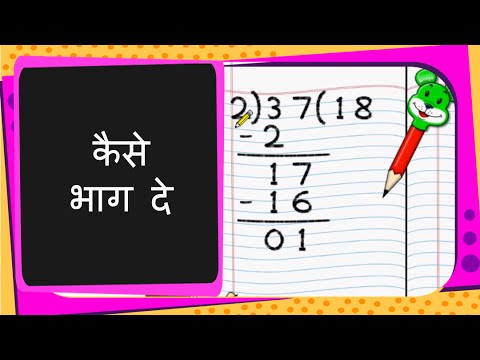 कैसे
भाग दे
2)37(18
-2
17
-16
01